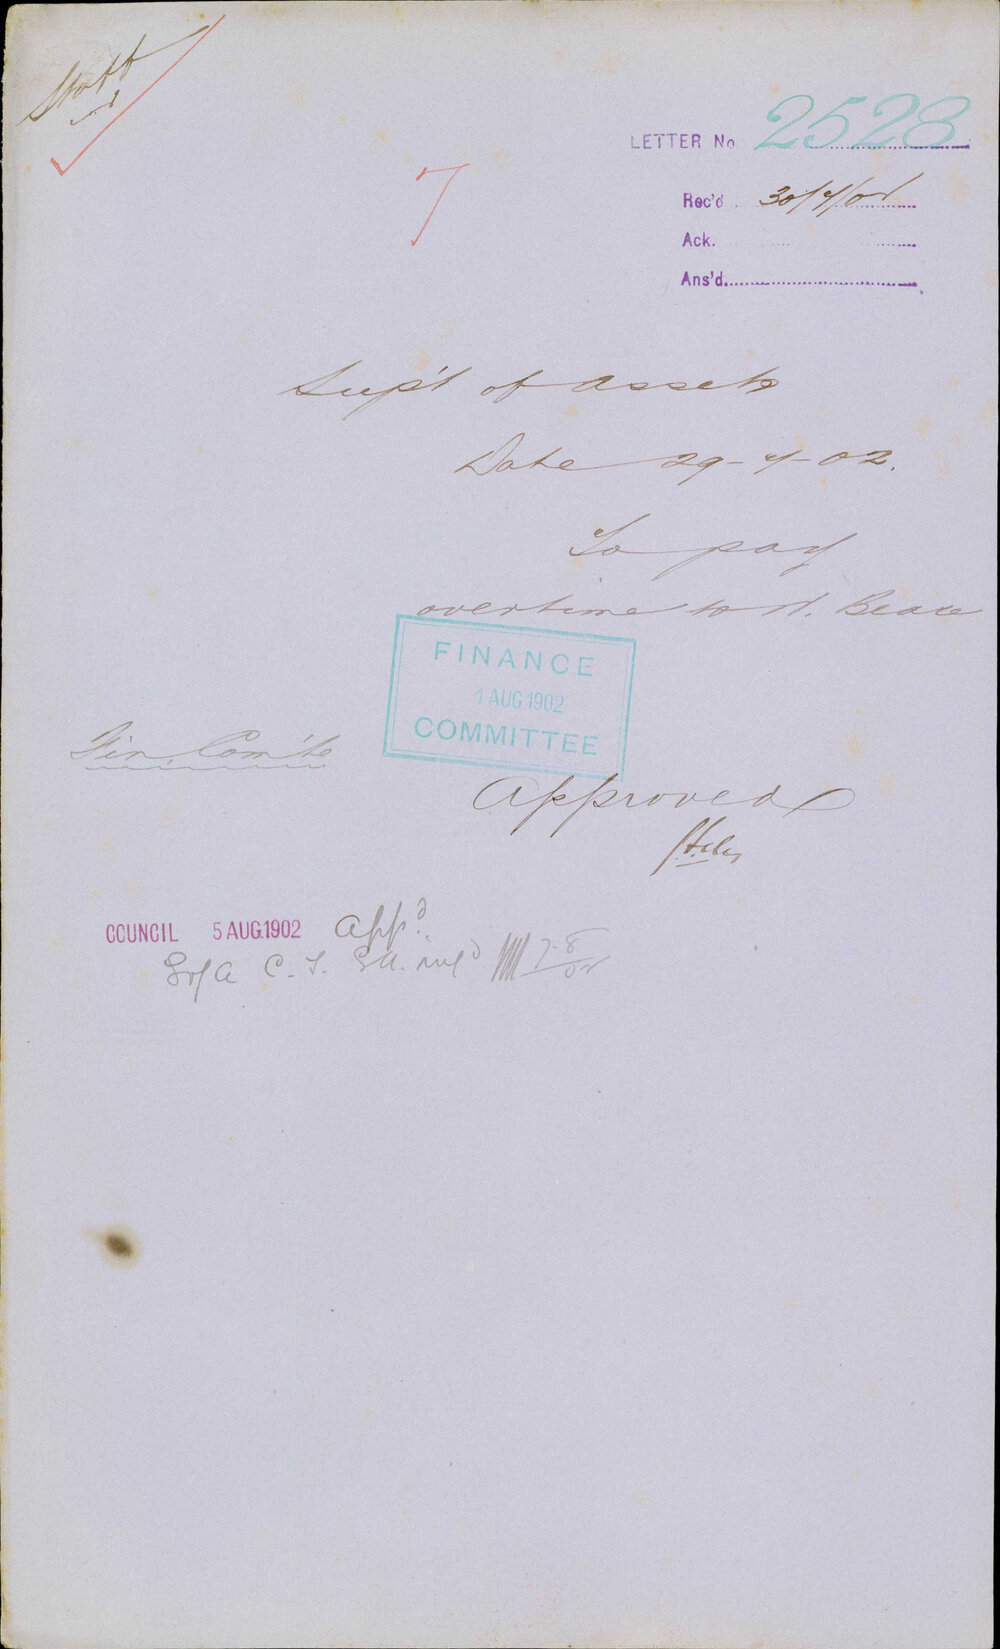 Staff
LETTER No 2528
7
Rec'd 30/7/02
Ack.
Ans'd
Sup't of Assets
Date 29-7-02.
To pay
overtime to H. Beare
FINANCE
1 AUG 1902
COMMITTEE
Fin. Com'te
Approved
COUNCIL 5 AUG.1902 App.d
S of A C. T. inf'd 7.8/02